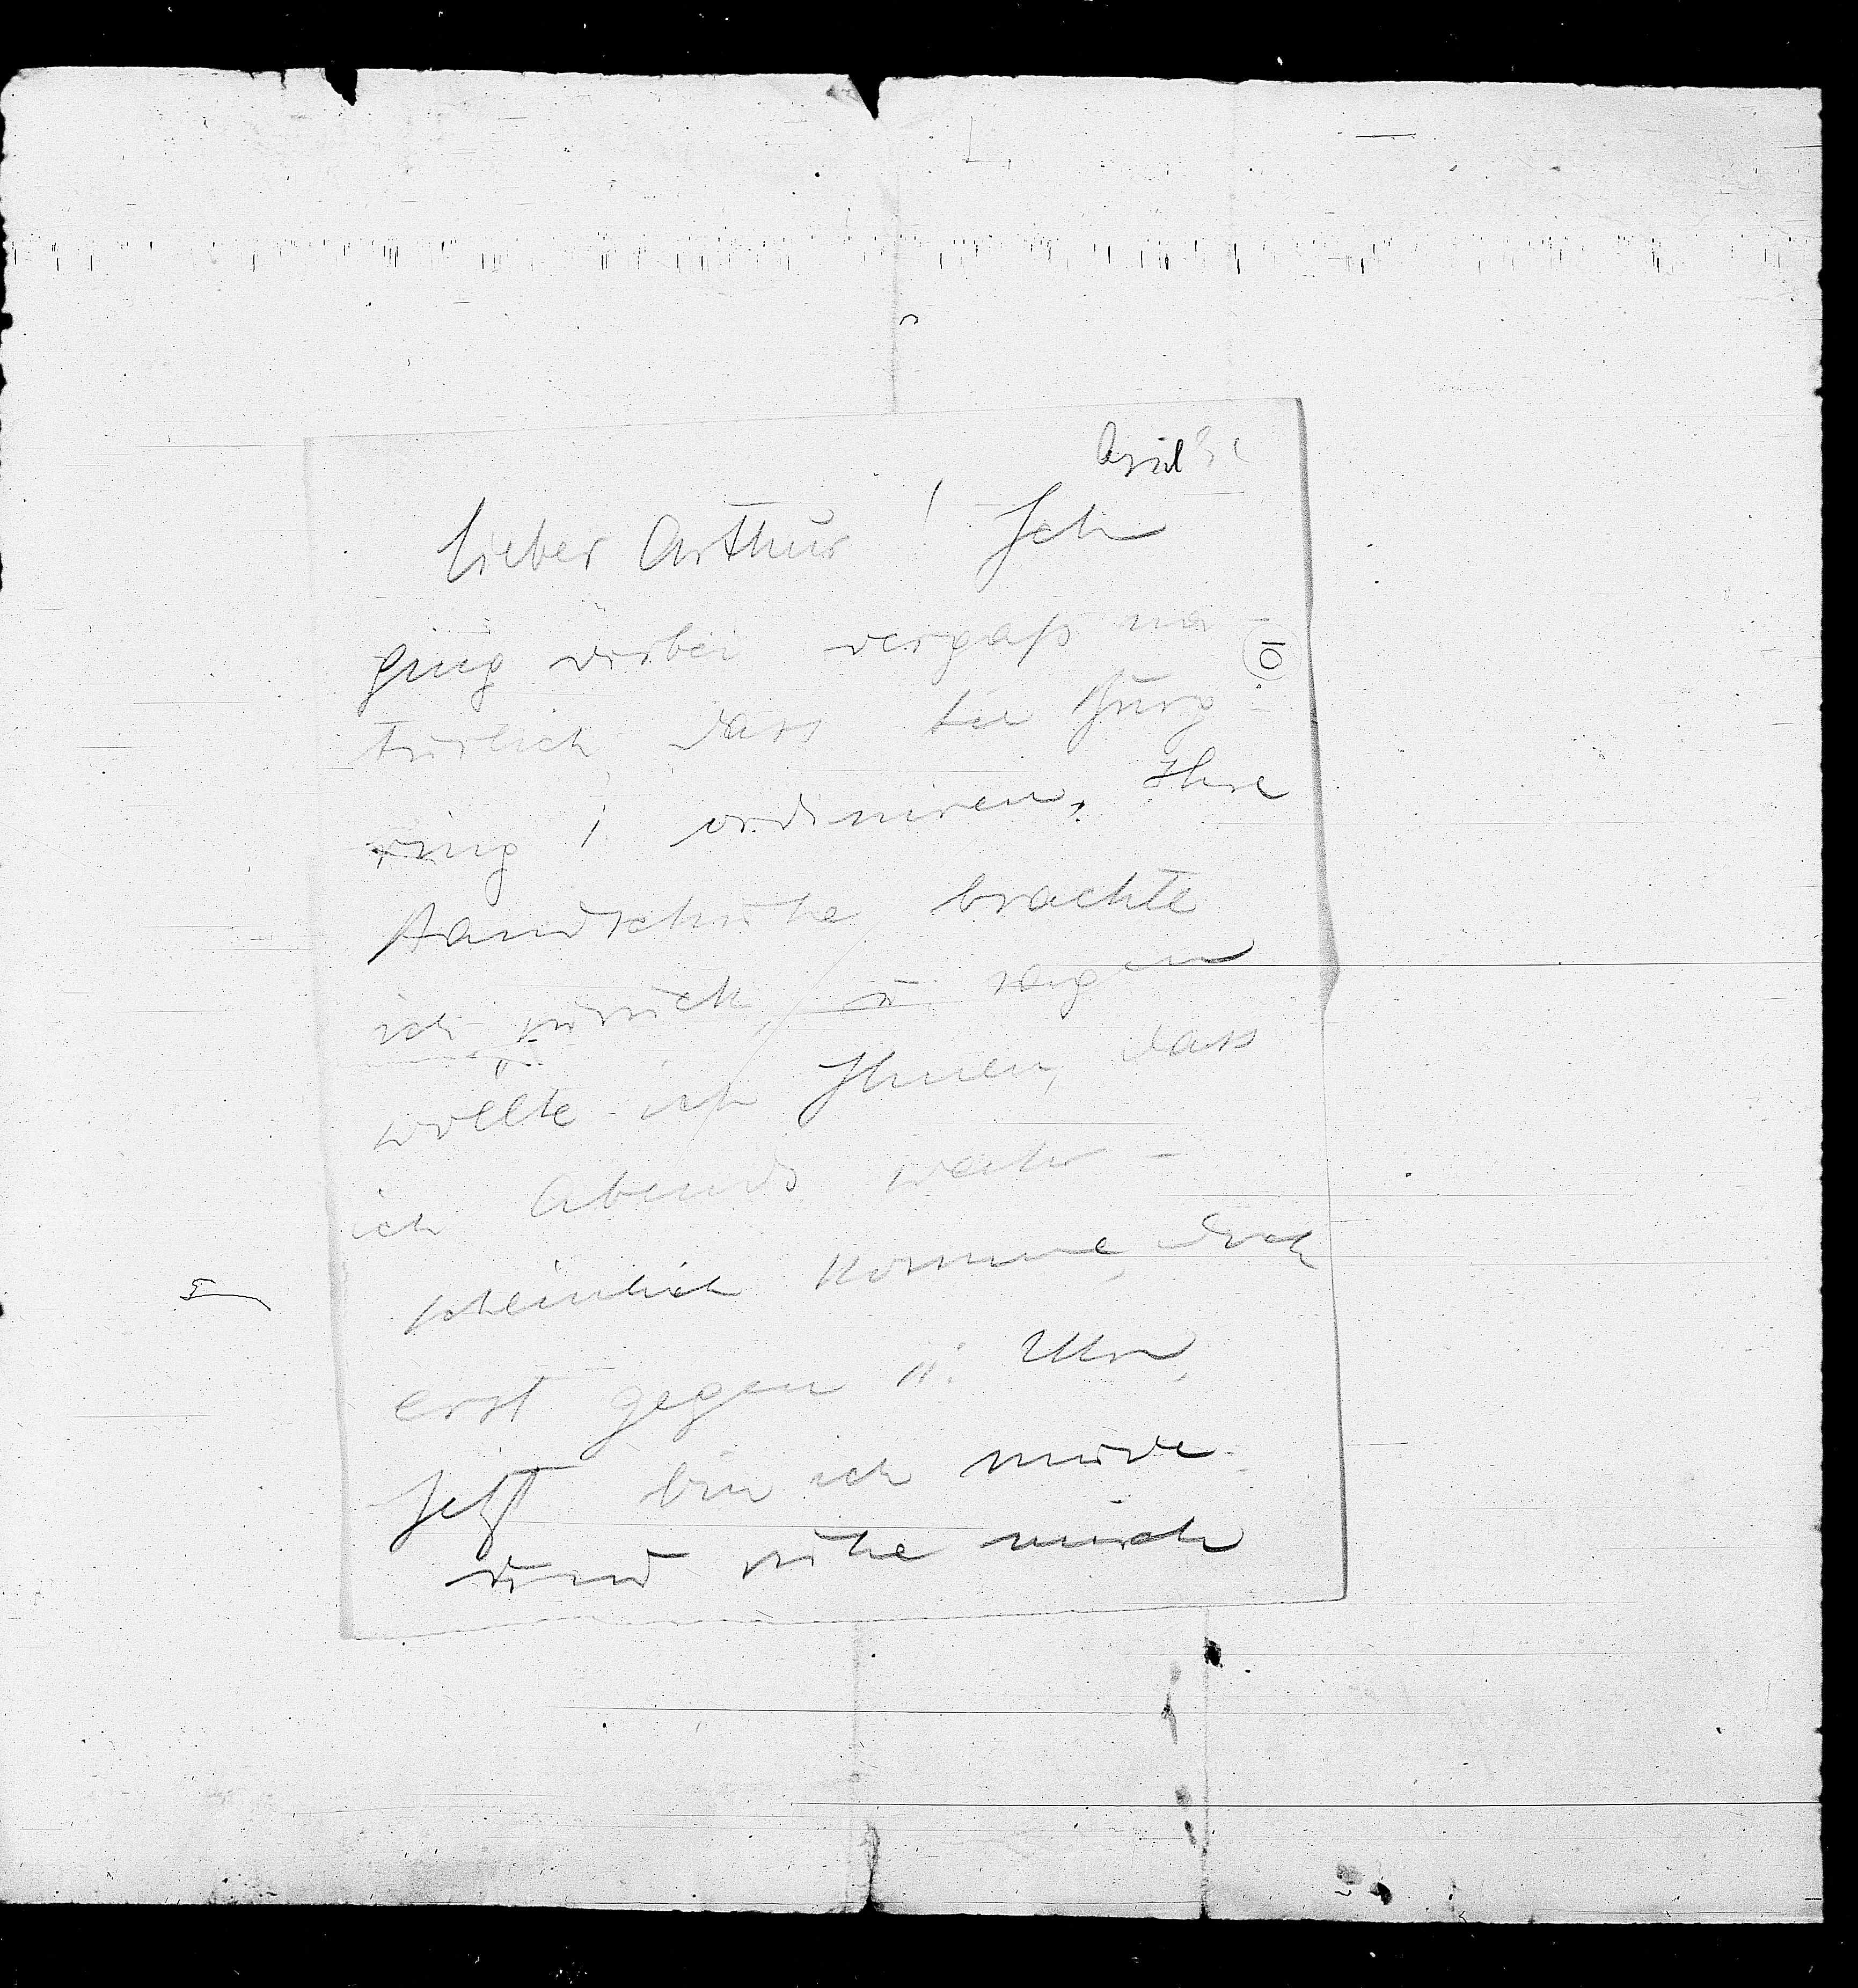 April
Lieber Arthur! Ich
ging vorbei vergaß na-
10
türlich, dass Sie Burg-
ring 1 ordiniren. Ihre
Handschuhe brachte
ich zurück, u. sagen
wollte ich Ihnen, dass
ich Abends wahr-
scheinlich komme, doch
erst gegen 11. Uhr,
Jetzt bin ich müde
und ruhe mich